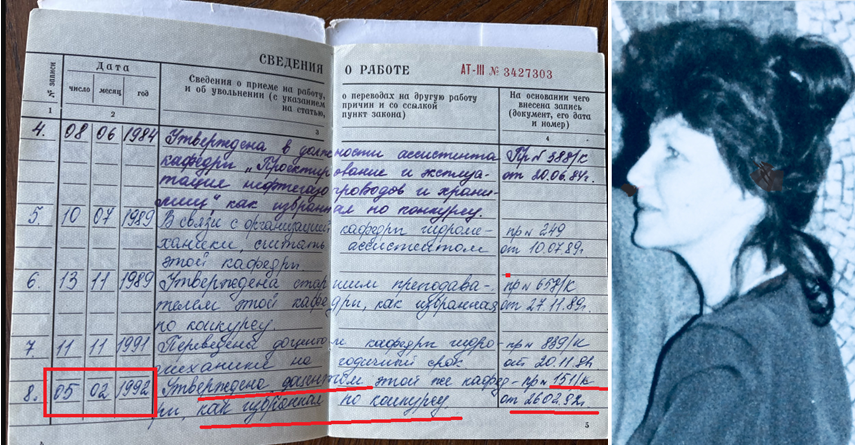 СВЕДЕНИЯ О РАБОТЕ АТ-III № 3427303
№ записи
Дата
число месяц год
Сведения о приеме на работу, о переводах на другую работу
и об увольнении (с указанием причин и со ссылкой
на статью, пункт закона)
На основании чего
внесена запись
(документ, его дата
и номер)
1 2 3 4
4. 08 06 1984 Утверждена в должности ассистента Пр № 388/к
кафедры „Проектирование и эксплуа- от 20.06.84г.
тация нефтегазопроводов и храни-
лищ" как избранная по конкурсу.
5. 10 07 1989 В связи с организацией кафедры гидроме- пр № 249
ханики считать ассистентом от 10.07.89г.
этой кафедры.
6. 13 11 1989 Утверждена старшим преподава- пр № 658/к
телем этой кафедры, как избранная от 27.11.89г.
по конкурсу.
7. 11 11 1991 Переведена доцентом кафедры гидро- пр № 839/к
механики на годичный срок от 20.11.91
8. 05 02 1992 Утверждена доцентом этой же кафед- пр № 151/к
ры, как избранная по конкурсу. от 26.02.92г.
5